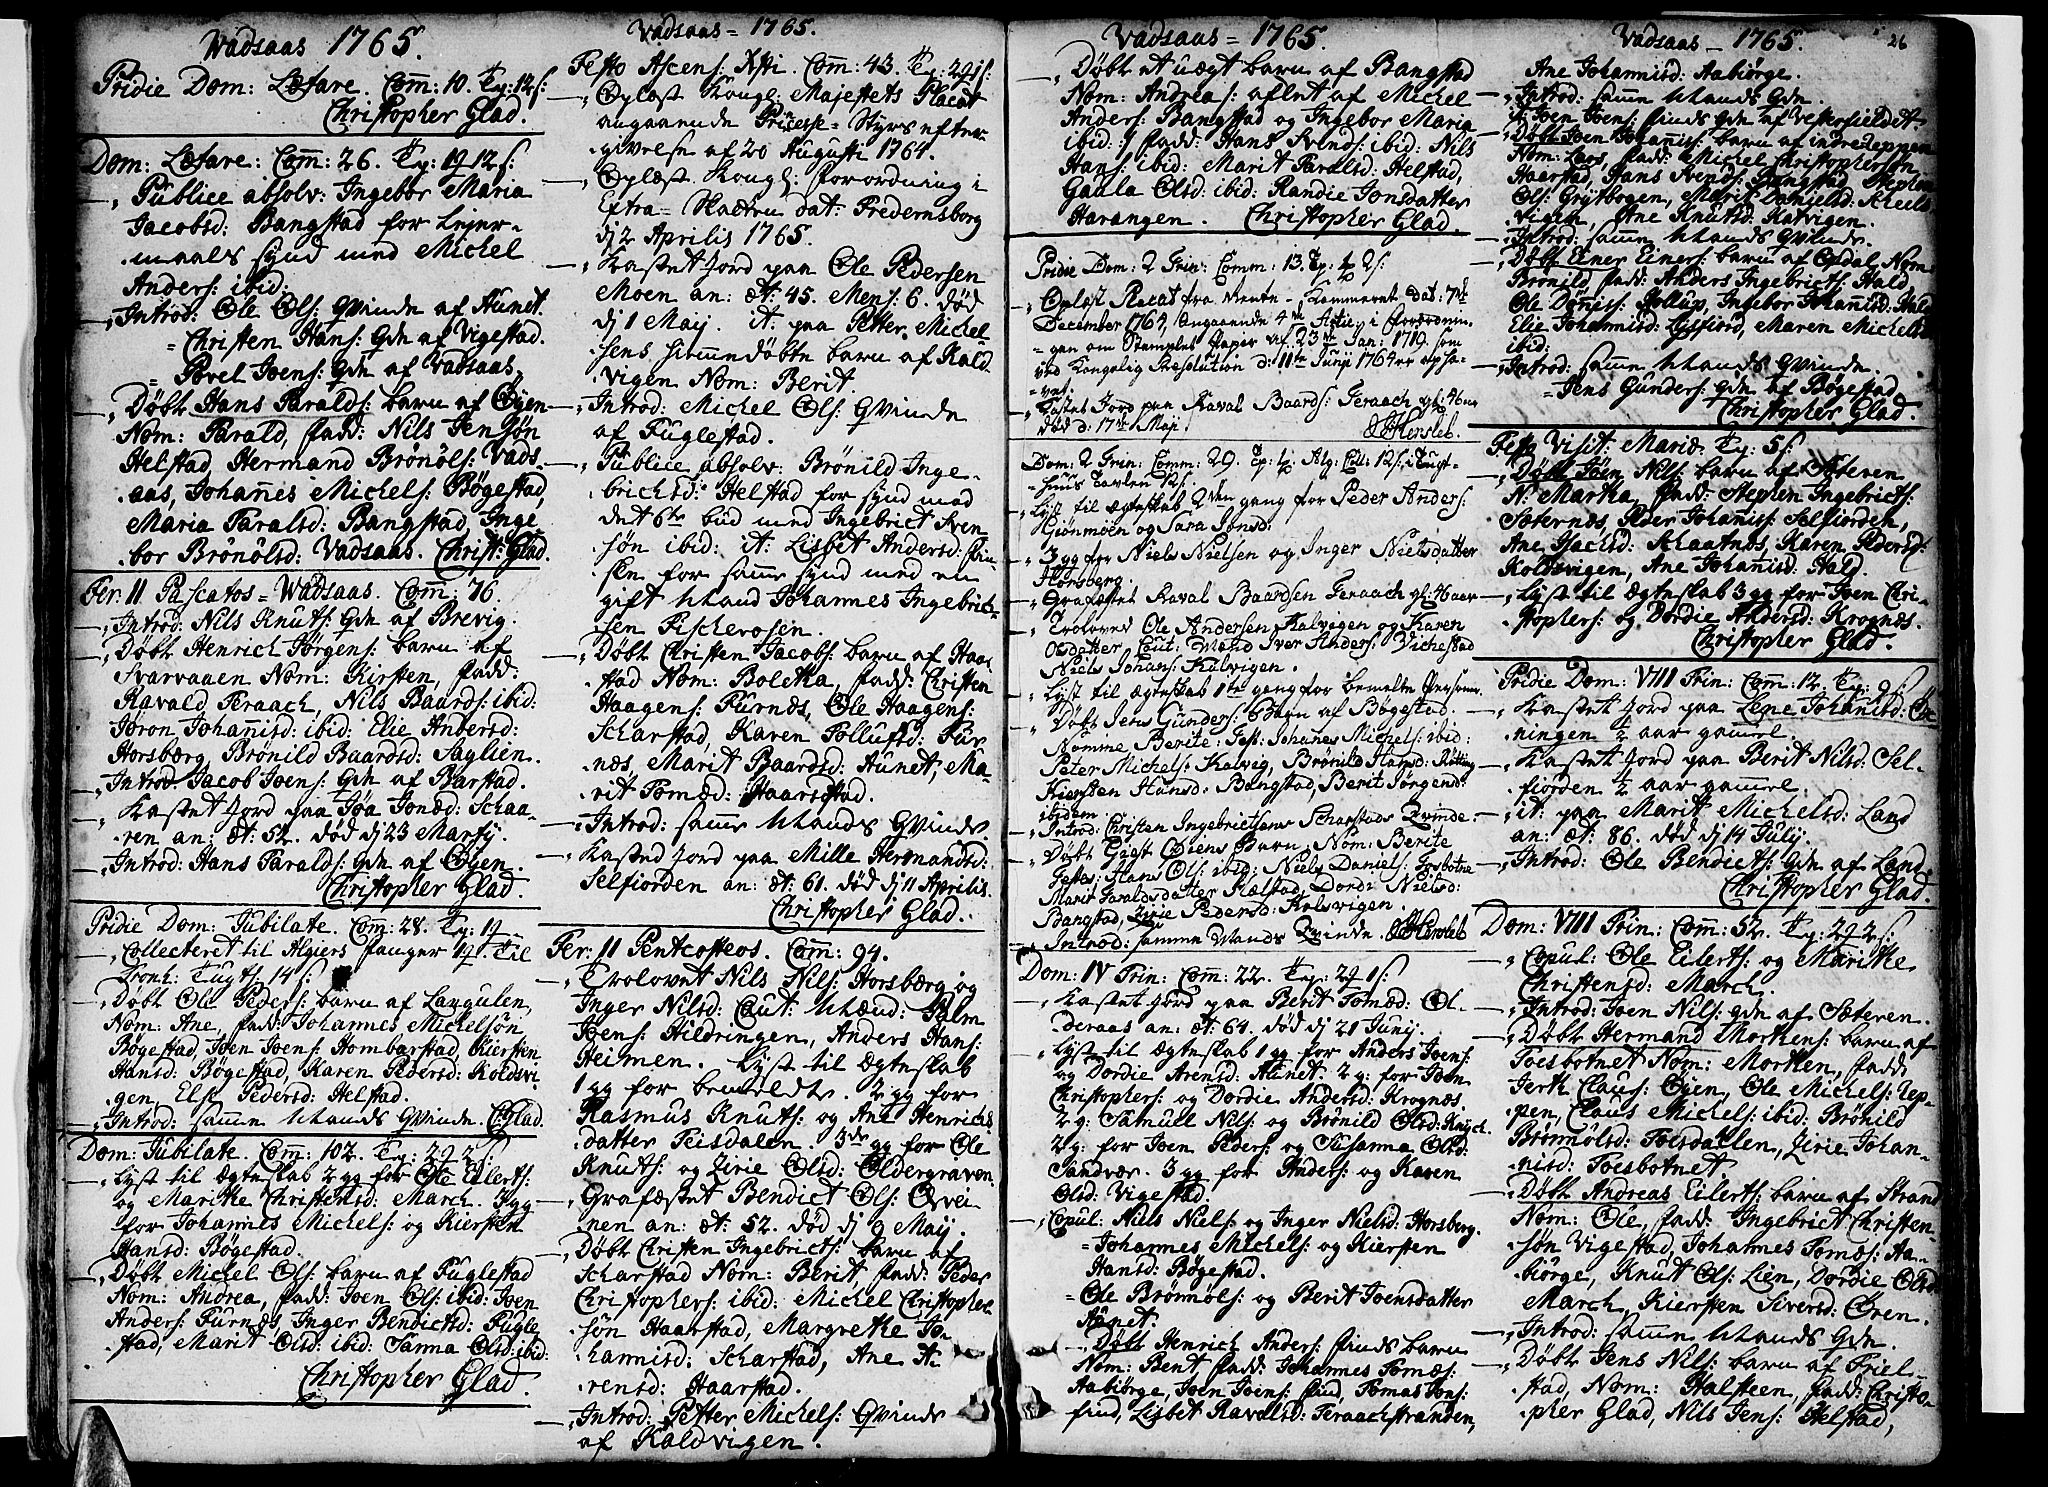 Wadsaas 1765.
Pridie Dom: Lætare. Com̄: 10. Tz: 12 s:
Christopher Glad.
Dom: Lætare: Com̄: 26. Tz: 1912 s:
Publice absolv: Ingebor Maria
Jacobsd: Bangstad for Lejer-
maals synd med Michel
Anders: ibid:
Introd: Ole Ols: Qvinde af Aunet.
= Christen Hans: Qdn af Vigestad.
= Povel Joens: Qdn af Vadsaas.
Døbt Hans Taralds: barn af Øyen
Nom: Tarald, fadd: Nils Jensøn
Helstad, Hermand Brønols: Vads-
aas, Johannes Michels: Bøgestad,
Maria Taralsd: Bangstad, Inge
bor Brønølsd: Vadsaas. Christ: Glad.
Fer: II Pascatos = Wadsaas. Com̄: 76.
Introd: Nils Knuts: Qdn af Brevig.
Døbt Henrich Jørgens: barn af
Svarvaaen Nom: Kirsten, fadd:
Ravald Teraach, Nils Baards: ibid:
Jøron Johanisd: ibid: Elie Andersd:
Horsbærg, Brønild Baardsd: Saglien.
Introd: Jacob Joens: Qdn af Barstad.
Kastet Jord paa Joa Jonæd: Schaa-
ren an: æt: 52. død dj 23 Martij.
Introd: Hans Taralds: Qdn af Øyen.
Christopher Glad.
Pridie Dom: Jubilate. Com̄: 28. Tz: 19
Collecteret til Algiers fanger 19. Til
Tronh: Tugth: 14 s:
Døbt Ole Peders: barn af Langulen,
Nom: Ane, fadd: Johannes Michelsøn
Bøgestad, Joen Joens: Hombarstad, Kiersten
Hansd: Bøgestad, Karen Pedersd: Koldvi
gen, Else Pedersd: Helstad.
Introd: samme Mands Qvinde. C: Glad.
Dom: Jubilate. Com̄: 102. Tz: 29 2 s:
Lyst til ægteskab 2 gg for Ole Eilerts:
og Marithe Christensd: March. 3 gg
for Johannes Michels: og Kiersten
Hansd: Bøgestad.
Døbt Michel Ols: barn af Fuglestad
Nom: Andrea, fadd: Joen Ols: ibid: Joen
Anders: Furnæs, Inger Bendictsd: Fugle
stad, Marit Olsd: ibid: Tanna Olsd: ibid:
Christopher Glad.
Vadsaas = 1765.
Festo Ascens: Xsti. Com̄: 43. Tz: 291 s:
Oplæst Kongl: Majestets Placat
angaaende Princesse = Styrs efter
givelse af 20 Augusti 1764.
Oplæst Kongl: forordning i
Extra = Skatten dat: Fredernsborg
dj 2 Aprilis 1765.
Kastet Jord paa Ole Pedersen
Moen an: æt: 45. Mens: 6. død
dj 1 Maij. it: paa Petter Michel
sens hiemmedøbte barn af Kald
vigen Nom: Berit.
Introd: Michel Ols: Qvinde
af Fuglestad.
Publice absolv: Brønild Inge
brichsd: Helstad for synd mod
det 6te bud med Ingebrict Sven
søn ibid: it: Lisbet Andersd: fin
ske for samme synd med en
gift Mand Johannes Ingebrich
sen Fischerosen.
Døbt Christen Jacobs: barn af Haar
stad Nom: Boletha, fadd: Christen
Haagens: Furnæs, Ole Haagens:
Scharstad, Karen Tollufsd: Fur
næs Marit Baardsd: Aunet, Ma-
rit Tomæd: Haarstad.
Introd: samme Mands Qvinde.
Kasted Jord paa Mille Hermandsd:
Selfiorden an: æt: 61. død dj 11 Aprilis.
Christopher Glad.
Fer: II Pentcosteos. Com̄: 94.
Trolovet Nils Nils: Horsbærg og
Inger Nilsd: Caut: Mænd: Palm
Joens: Hildringen, Anders Hans:
Heimen. Lyst til ægteskab
1 gg for bemeldte. 2 gg for
Rasmus Knuts: og Ane Henrichs
datter Teisdalen. 3de gg for Ole
Knuts: og Zirie Olsd: Oldergraven.
Grafæstet Bendict Ols: Qvei
nen an: æt: 52. død dj 9 Maij.
Døbt Christen Ingebricts: barn af
Scharstad Nom: Berit, fadd: Peder
Christophers: ibid: Michel Christopher
søn Haarstad, Margrethe Jo-
hannisd: Scharstad, Ane A-
rensd: Haarstad.
Introd: Petter Michels: Qvinde
af Kaldvigen.
Vadsaas = 1765.
Døbt et uægt barn af Bangstad
Nom: Andreas: aflet af Michel
Anders: Bangstad og Ingebor Maria
ibid: fadd: Hans Svends: ibid: Nils
Hans: ibid: Marit Taralsd: Helstad,
Gaala Olsd: ibid: Randie Jonsdatter
Harangen. Christopher Glad.
Pridie Dom: 2 Trin: Comm: 13. Tz: 2 s:
Oplæst Placat fra Rente-Kammeret dat: 7de
December 1764, Angaaende 4de Artic: i forordnin-
gen om Stemplet Paper af 23de Jan: 1719. som
ved Kongelig Resolution d: 11te Junij 1764 er ophæ-
vet.
Kastet Jord paa Raval Baards: Teraach gl: 46 aar
død d: 17de Maj. Hersleb.
Dom: 2 Trin: Comm: 29. Alg: Coll: 12 s: Tugt-
huus Tavlen 12 s:
Lyst til ægteskab 2den gang for Peder Anders:
Hiønmoen og Sara Jonsd:
3 gg for Niels Nielsen og Inger Nielsdatter
Horsberg.
Grafæstet Raval Baardsen Teraach gl: 46 aar
Troloved Ole Andersen Kalvigen og Karen
Olsdatter Caut: Mænd Iver Anders: Vichestad
Niels Johans: Kalvigen.
Lyst til ægteskab 1te gang for bemelte Personer.
Døbt Jens Gunders: Barn af Bøgestad.
Nomine Berite: Test: Johanes Michels: ibid:
Peter Michels: Kalvig, Brønild Hansd: Røtting
Kiersten Hansd: Bangstad, Berit Jørgensd:
ibidem
Introd: Christen Ingebrictsens Scharstads Qvinde.
Døbt Giest Øiens Barn: Nom: Berite
Testes: Hans Ols: ibid: Niels Daniels: Forbotne
Marit Taraldsdatter Hælstad, Dordi Nielsd:
Bangstad, Zirie Pedersd: Kolsvigen.
Introd: samme Mands Qvinde. Hersleb
Dom: IV Trin: Com̄: 22. Tz: 29 1 s:
Kastet Jord paa Berit Tomæd: Ol-
deraas an: æt: 64. død dj 21 Junij.
Lyst til ægteskab 1 gg for Anders Joens:
og Dordie Arensd: Aunet. 2 g: for Joen
Christophers: og Dordie Andersd: Krognæs.
2 g: Samuel Nils: og Brønild Olsd: Knych.
2 g: for Joen Peders: og Susanna Olsd:
Sandvær. 3 gg for Anders: og Karen
Olsd: Vigestad.
Copul: Niels Niels: og Inger Nielsd: Horsberg.
= Johannes Michels: og Kiersten
Hansd: Bøgestad.
= Ole Brønnols: og Berit Joensdatter
Aunet.
Døbt Henrich Anders: finds barn
Nom: Bent fadd: Johannes Tomæs:
Aabiørge, Joen Joens: find, Tomas Jons:
find, Lisbet Ravalsd: Teraachstranden,
Vadsaas - 1765. 26
Ane Johannisd: Aabiørge.
Introd: samme Mands Qdn.
it Joen Joens: finds Qdn af Vesterfieldet.
Døbt Joen Johaniss: barn af indre Leppen
Nom: Lars, fadd: Michel Christophersøn
Haarstad, Hans Svends: Bangstad, Stephen
Ols: Grytbogen, Marit Danielsd: Scheels
vigen, Ane Knutsd: Kalvigen.
Introd: samme Mands Qvinde.
Døbt Einer Einers: barn af Opdal, Nom:
Brønild, fadd: Anders Ingebricts: Hald,
Ole Døniss: Gollup, Ingebor Johanisd: Hald
Elie Johannisd: Lysfiord, Maren Michelsd:
ibid:
Introd: samme Mands Qvinde.
= Jens Gunders: Qdn af Bøgestad
Christopher Glad.
Festo Visit: Mariæ. Tz: 5 s:
Døbt Joen Nils: barn af Sæteren
N: Martha, fadd: Stephen Ingebricts:
Sæternæs, Peder Johaniss: Selfiorden,
Ane Isachsd: Schaatnæs, Karen Pedersd:
Koldsvigen, Ane Johanisd: Hald.
Lyst til ægteskab 3 gg for Joen Chri-
stophers: og Dordie Andersd: Krognæs.
Christopher Glad.
Pridie Dom: VIII Trin: Com̄: 12. Tz: 9 s:
Kastet Jord paa Lene Johanisd:
ningen ½ aar gamel.
Kastet Jord paa Berit Nilsd: Sel-
fiorden ½ aar gamel.
it: paa Marit Michelsd: Land
an: æt: 86. død dj 14 July.
Introd: Ole Bendicts: Qdn af Land.
Christopher Glad.
Dom: VIII Trin: Com̄: 52. Tz: 29 2 s:
Copul: Ole Eilerts: og Marithe
Christensd: March.
Introd: Joen Nils: Qdn af Sæteren.
Døbt Hermand Mortens: barn af
Toesbotnet Nom: Morten, fadd:
Jerth Claus: Øyen, Ole Michels: Lep-
pen, Claus Michels: ibid: Brønild
Brønnølsd: Toesdallen, Zirie Johan-
nisd: Toesbotnet
Døbt Andreas Eilerts: barn af Strand
Nom: Ole, fadd: Ingebrict Christen-
søn Vigestad, Johannes Tomæs: Aa-
biørge, Knut Ols: Lien, Dordie Olsd:
March, Kiersten Siversd: Øren.
Introd: samme Mands Qdn.
Døbt Jens Nils: barn af Triel-
stad, Nom: Halsteen, fadd: Christo-
pher Glad, Nils Jens: Helstad,